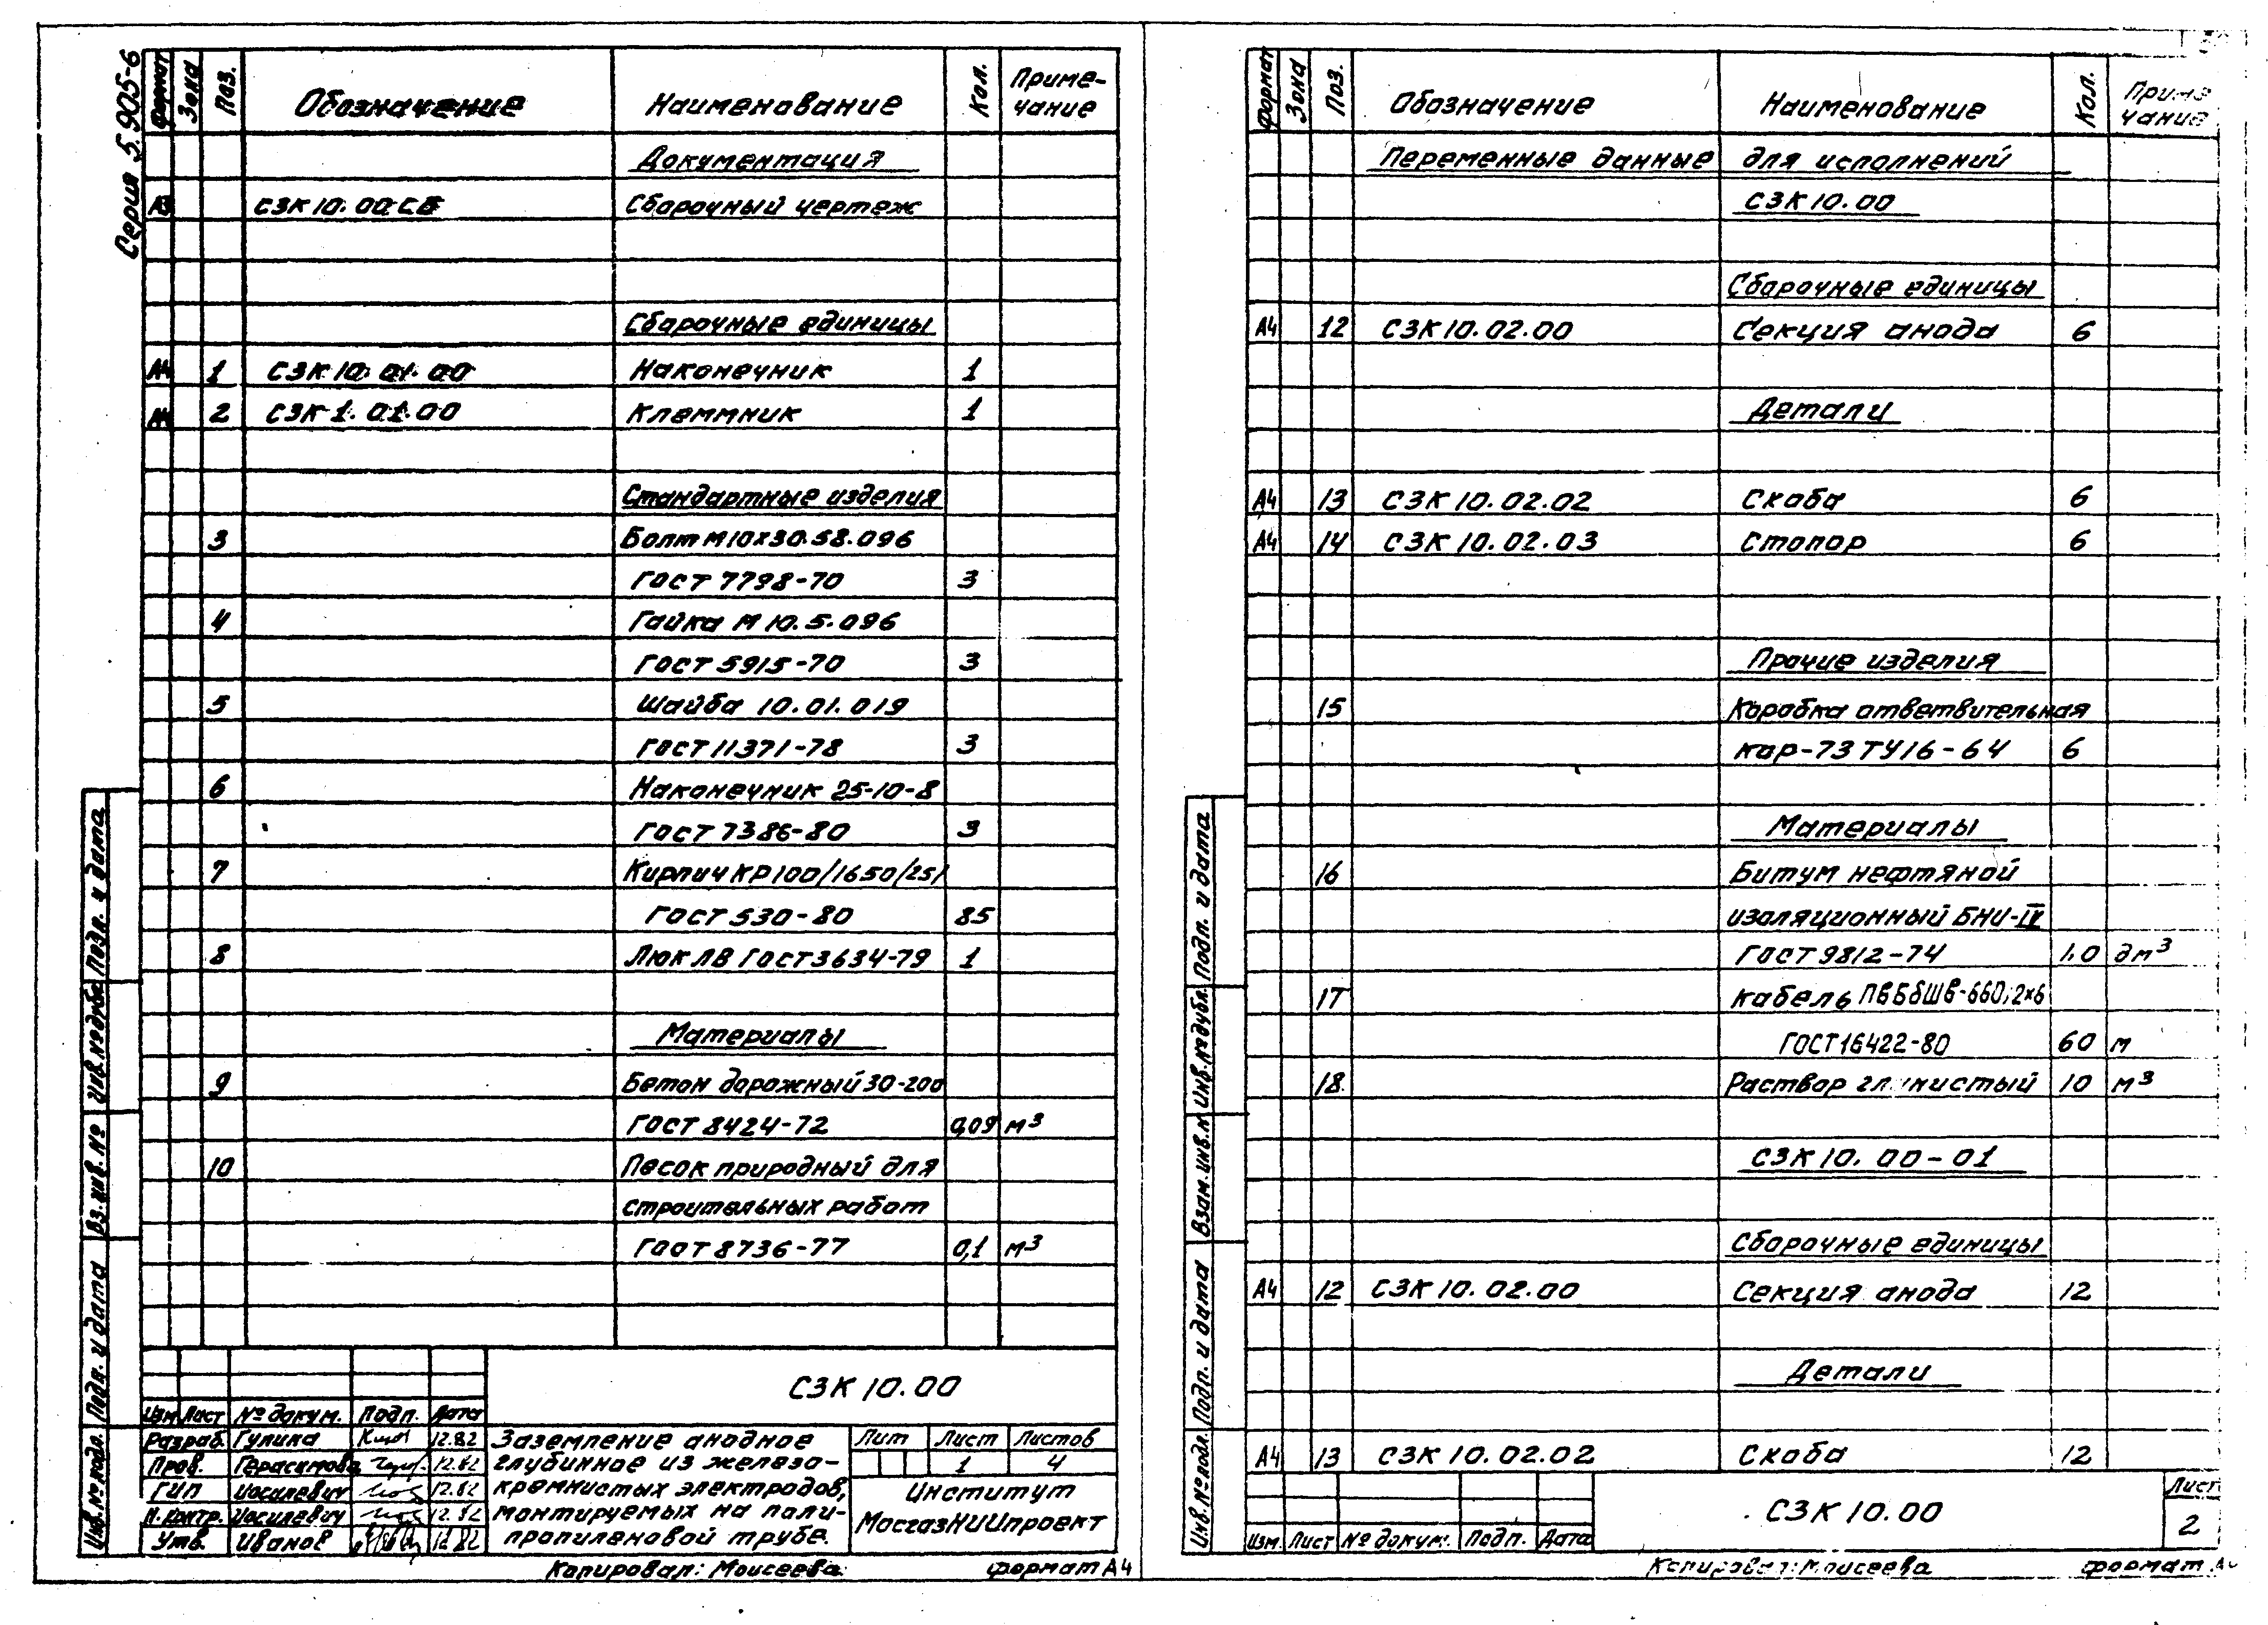 Серия 5.905-6
Формат Зона Поз. Обозначение Наименование Кол. Приме-
чание
Документация
А3 СЗК 10.00 СБ Сборочный чертеж
Сборочные единицы
А4 1 СЗК 10.01.00 Наконечник 1
А4 2 СЗК 1.01.00 Клеммник 1
Стандартные изделия
3 Болт М10х30.58.096
ГОСТ 7798-70 3
4 Гайка М 10.5.096
ГОСТ 5915-70 3
5 Шайба 10.01.019
ГОСТ 11371-78 3
6 Наконечник 25-10-8
ГОСТ 7386-80 3
7 Кирпич КР100/1650/25/
ГОСТ 530-80 85
8 Люк ЛВ ГОСТ 3634-79 1
Материалы
9 Бетон дорожный 30-200
ГОСТ 8424-72 0,09 м³
10 Песок природный для
строительных работ
ГОСТ 8736-77 0,1 м³
Инв.№ подл. Подп. и дата Вз.инв.№ Инв.№ дубл. Подп. и дата
СЗК 10.00
Изм Лист № докум. Подп. Дата
Разраб. Гулина 12.82
Пров. Герасимова 12.82
ГИП Иосилевич 12.82
Н.контр. Иосилевич 12.82
Утв. Иванов 12.82
Заземление анодное
глубинное из железо-
кремнистых электродов,
монтируемых на поли-
пропиленовой трубе.
Лит Лист Листов
1 4
Институт
МосгазНИИпроект
Копировал: Моисеева формат А4
Формат Зона Поз. Обозначение Наименование Кол. Приме
чание
Переменные данные для исполнений
СЗК 10.00
Сборочные единицы
А4 12 СЗК 10.02.00 Секция анода 6
Детали
А4 13 СЗК 10.02.02 Скоба 6
А4 14 СЗК 10.02.03 Стопор 6
Прочие изделия
15 Коробка ответвительная
кор-73 ТУ16-64 6
Материалы
16 Битум нефтяной
изоляционный БНИ-IV
ГОСТ 9812-74 1,0 дм³
17 Кабель ПвБбШв-660; 2х6
ГОСТ 16422-80 60 м
18 Раствор глинистый 10 м³
СЗК 10.00-01
Сборочные единицы
А4 12 СЗК 10.02.00 Секция анода 12
Детали
А4 13 СЗК 10.02.02 Скоба 12
Инв.№ подл. Подп. и дата Взам.инв.№ Инв.№ дубл. Подп. и дата
Изм Лист № докум. Подп. Дата
СЗК 10.00
Лист
2
Копировал: Моисеева формат А4